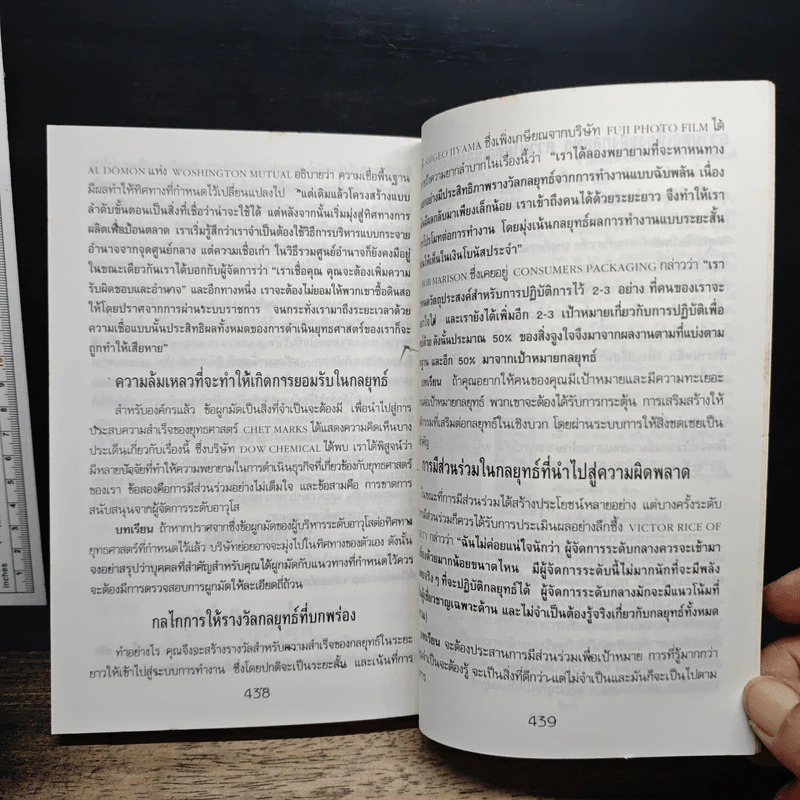 AL DOMON แห่ง WOSHINGTON MUTUAL อธิบายว่า ความเชื่อพื้นฐาน
มีผลทำให้ทิศทางที่กำหนดไว้เปลี่ยนแปลงไป "แต่เดิมแล้วโครงสร้างแบบ
ลำดับขั้นตอนเป็นสิ่งที่เชื่อว่าน่าจะใช้ได้ แต่หลังจากนั้นเริ่มมุ่งสู่ทิศทางการ
ผลิตเพื่อป้อนตลาด เราเริ่มรู้สึกว่าเราจำเป็นต้องใช้วิธีการบริหารแบบกระจาย
อำนาจจากจุดศูนย์กลาง แต่ความเชื่อเก่า ในวิธีรวมศูนย์อำนาจก็ยังคงมีอยู่
ในขณะเดียวกันเราได้บอกกับผู้จัดการว่า "เราเชื่อคุณ คุณจะต้องเพิ่มความ
รับผิดชอบและอำนาจ" และอีกทางหนึ่ง เราจะต้องไม่ยอมให้พวกเขาซื้อดินสอ
ได้โดยปราศจากการผ่านระบบราชการ จนกระทั่งเรามาถึงระยะเวลาด้วย
ความเชื่อแบบนั้นประสิทธิผลทั้งหมดของการดำเนินยุทธศาสตร์ของเราก็จะ
ถูกทำให้เสียหาย"
ความล้มเหลวที่จะทำให้เกิดการยอมรับในกลยุทธ์
สำหรับองค์กรแล้ว ข้อผูกมัดเป็นสิ่งที่จำเป็นจะต้องมี เพื่อนำไปสู่การ
ประสบความสำเร็จของยุทธศาสตร์ CHET MARKS ได้แสดงความคิดเห็นบาง
ประเด็นเกี่ยวกับเรื่องนี้ ซึ่งบริษัท DOW CHEMICAL ได้พบ เราได้พิสูจน์ว่า
มีหลายปัจจัยที่ทำให้ความพยายามในการดำเนินธุรกิจที่เกี่ยวข้องกับยุทธศาสตร์
ของเรา ข้อสองคือการมีส่วนร่วมอย่างไม่เต็มใจ และข้อสามคือ การขาดการ
สนับสนุนจากผู้จัดการระดับอาวุโส
บทเรียน ถ้าหากปราศจากซึ่งข้อผูกมัดของผู้บริหารระดับอาวุโสต่อทิศทาง
ยุทธศาสตร์ที่กำหนดไว้แล้ว บริษัทย่อยอาจจะมุ่งไปในทิศทางของตัวเอง ดังนั้น
จงอย่าสรุปว่าบุคคลที่สำคัญสำหรับคุณได้ผูกมัดกับแนวทางที่กำหนดไว้ควร
จะต้องมีการตรวจสอบการผูกมัดให้ละเอียดถี่ถ้วน
กลไกการให้รางวัลกลยุทธ์ที่บกพร่อง
ทำอย่างไร คุณจึงจะสร้างรางวัลสำหรับความสำเร็จของกลยุทธ์ในระยะ
ยาวให้เข้าไปสู่ระบบการทำงาน ซึ่งโดยปกติจะเป็นระยะสั้น และเน้นที่การ
438
SHIGEO IIYAMA ซึ่งเพิ่งเกษียณจากบริษัท FUJI PHOTO FILM ได้
ความยากลำบากในเรื่องนี้ว่า "เราได้ลองพยายามที่จะหาหนทาง
อย่างมีประสิทธิภาพรางวัลกลยุทธ์จากการทำงานแบบฉับพลัน เนื่อง
ผลกลับมาเพียงเล็กน้อย เราเข้าถึงคนได้ด้วยระยะยาว จึงทำให้เรา
โปรโมทต่อการทำงาน โดยมุ่งเน้นกลยุทธ์ผลการทำงานแบบระยะสั้น
ให้เห็นในเงินโบนัสประจำ"
BOB MARISON ซึ่งเคยอยู่ CONSUMERS PACKAGING กล่าวว่า "เรา
วัตถุประสงค์สำหรับการปฏิบัติการไว้ 2-3 อย่าง ที่คนของเราจะ
และเรายังได้เพิ่มอีก 2-3 เป้าหมายเกี่ยวกับการปฏิบัติเพื่อ
ดังนั้นประมาณ 50% ของสิ่งจูงใจจึงมาจากผลงานตามที่แบ่งตาม
และอีก 50% มาจากเป้าหมายกลยุทธ์
บทเรียน ถ้าคุณอยากให้คนของคุณมีเป้าหมายและมีความทะเยอะ
เป้าหมายกลยุทธ์ พวกเขาจะต้องได้รับการกระตุ้น การเสริมสร้างให้
ที่เสริมต่อกลยุทธ์ในเชิงบวก โดยผ่านระบบการให้สิ่งชดเชยเป็น
การมีส่วนร่วมในกลยุทธ์ที่นำไปสู่ความผิดพลาด
ในขณะที่การมีส่วนร่วมได้สร้างประโยชน์หลายอย่าง แต่บางครั้งระดับ
มีส่วนร่วมก็ควรได้รับการประเมินผลอย่างลึกซึ้ง VICTOR RICE OF
กล่าวว่า "ฉันไม่ค่อยแน่ใจนักว่า ผู้จัดการระดับกลางควรจะเข้ามา
ด้วยมากน้อยขนาดไหน มีผู้จัดการระดับนี้ไม่มากนักที่จะมีพลัง
จริงๆ ที่จะปฏิบัติกลยุทธ์ได้ ผู้จัดการระดับกลางมักจะมีแนวโน้มที่
ผู้เชี่ยวชาญเฉพาะด้าน และไม่จำเป็นต้องรู้จริงเกี่ยวกับกลยุทธ์ทั้งหมด
บทเรียน จะต้องประสานการมีส่วนร่วมเพื่อเป้าหมาย การที่รู้มากกว่า
จำเป็นจะต้องรู้ จะเป็นสิ่งที่ดีกว่า แต่ไม่จำเป็นและมันก็จะเป็นไปตาม
439
inches